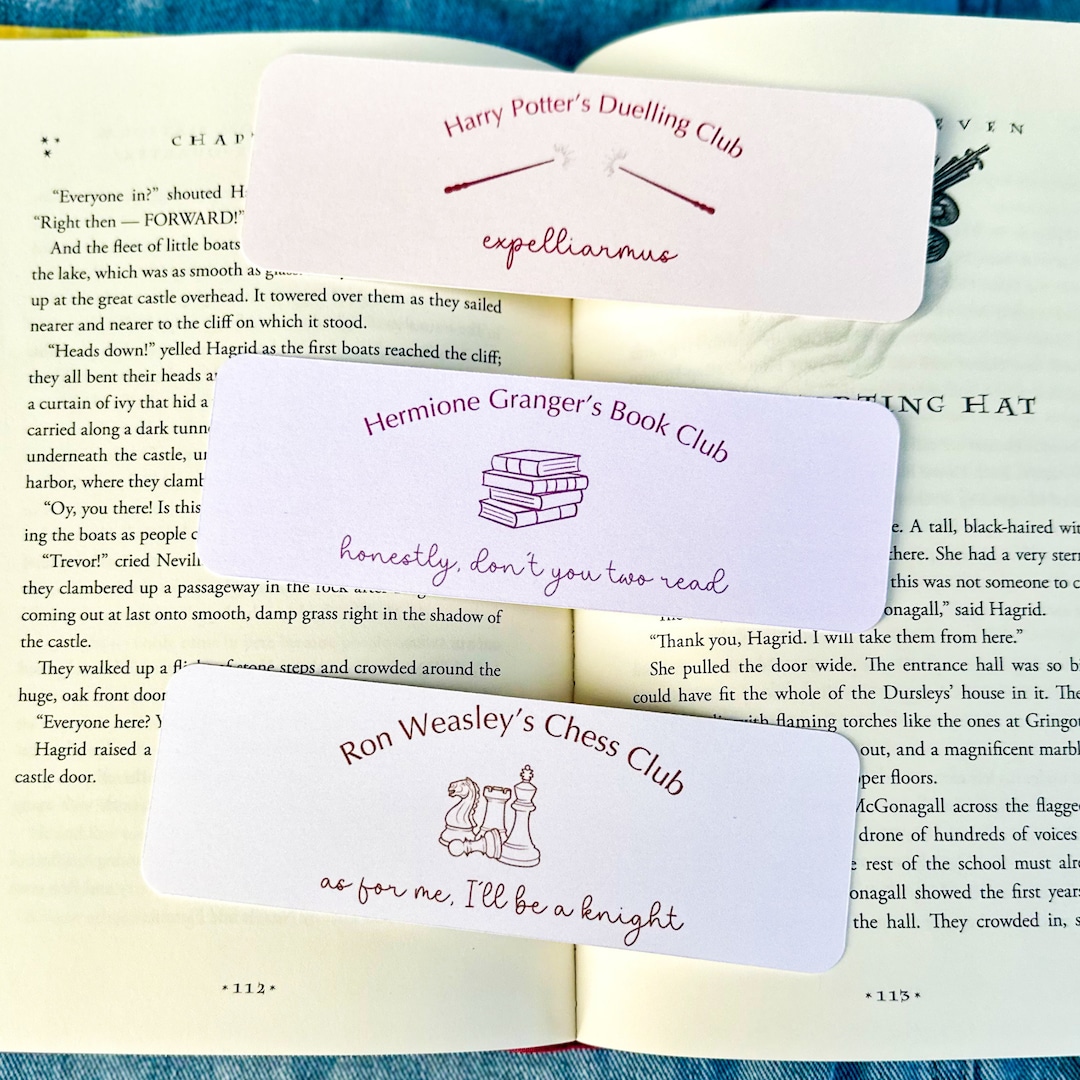 CHAP
EVEN
"Everyone in?" shouted
"Right then — FORWARD!"
And the fleet of little boats
the lake, which was as smooth as
up at the great castle overhead. It towered over them as they sailed
nearer and nearer to the cliff on which it stood.
"Heads down!" yelled Hagrid as the first boats reached the cliff;
they all bent their heads
a curtain of ivy that hid a
carried along a dark
underneath the castle,
harbor, where they
"Oy, you there! Is this
ing the boats as people
"Trevor!" cried
they clambered up a passageway in the rock
coming out at last onto smooth, damp grass right in the shadow of
the castle.
They walked up a flight of stone steps and crowded around the
huge, oak front
"Everyone here?
Hagrid raised a
castle door.
*112*
Harry Potter's Duelling Club
expelliarmus
Hermione Granger's Book Club
honestly, don't you two read
Ron Weasley's Chess Club
as for me, I'll be a knight
TING HAT
A tall, black-haired
there. She had a very
this was not someone to
said Hagrid.
"Thank you, Hagrid. I will take them from here."
She pulled the door wide. The entrance hall was so
could have fit the whole of the Dursleys' house in it.
with flaming torches like the ones at
out, and a magnificent
floors.
McGonagall across the
drone of hundreds of voices
rest of the school must
showed the first
the hall. They crowded in,
*113*